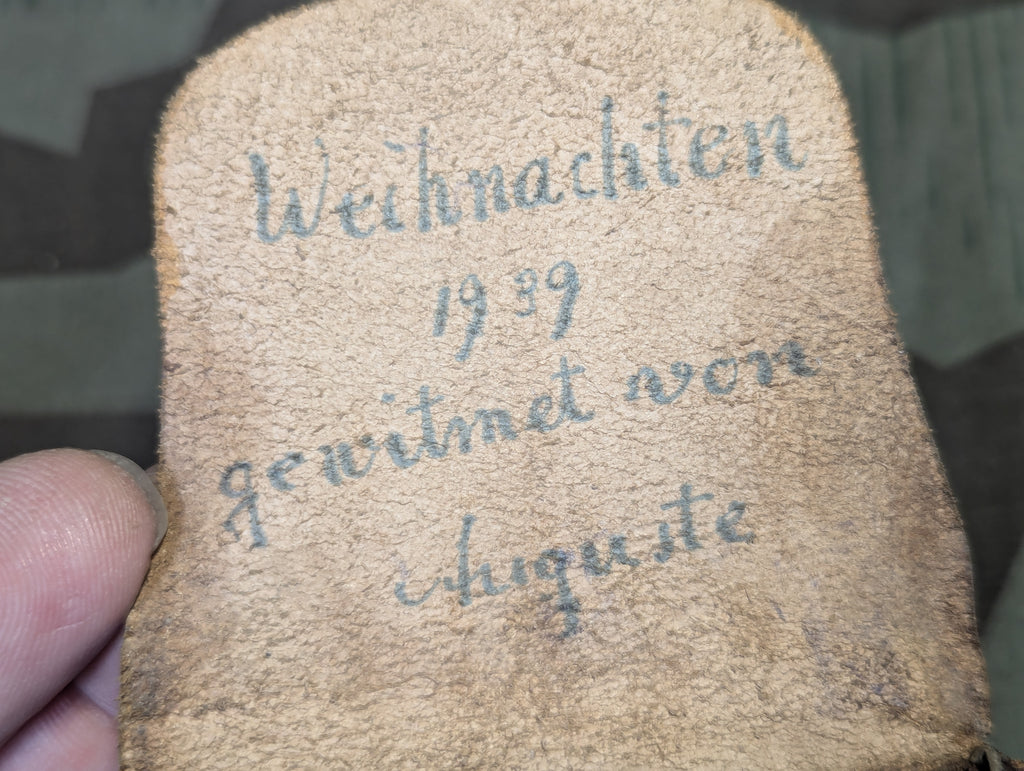 Weihnachten
1939
gewitmet von
Auguste